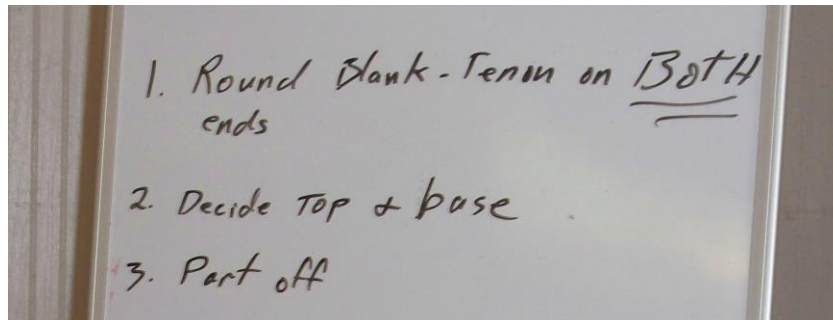 1. Round Blank - Tenon on BOTH
ends
2. Decide Top & base
3. Part off